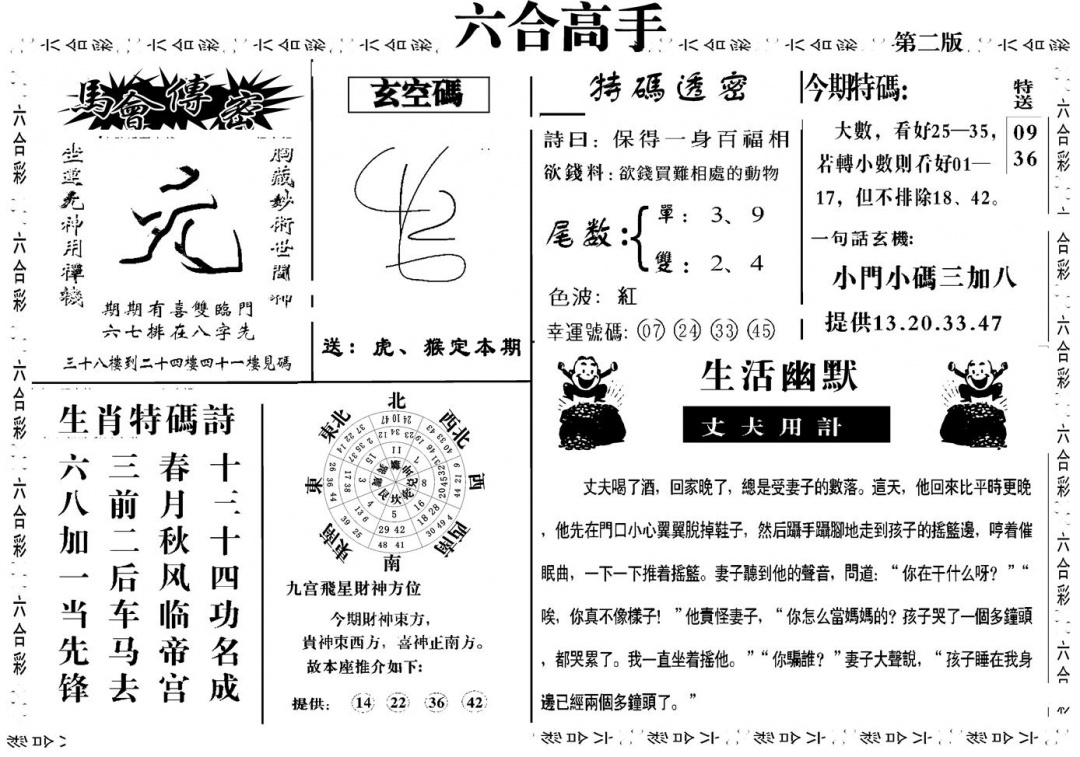 六合高手
第二版
馬會傳密
坐靈先神用禪機
胸藏妙術世間神
期期有喜雙臨門
六七排在八字先
三十八樓到二十四樓四十一樓見碼
玄空碼
送：虎、猴定本期
特碼透密
詩曰：保得一身百福相
欲錢料：欲錢買難相處的動物
尾数：
單：3、9
雙：2、4
色波：紅
幸運號碼：07 24 33 45
今期特碼：
大數，看好25—35，
若轉小數則看好01—
17，但不排除18、42。
特送
09
36
一句話玄機：
小門小碼三加八
提供13.20.33.47
生肖特碼詩
六八加一当先锋
三前二后车马去
春月秋风临帝宫
十三十四功名成
北
西北
西
西南
南
東南
東
東北
九宫飛星財神方位
今期財神東方，
貴神東西方，喜神正南方。
故本座推介如下：
提供：14 22 36 42
生活幽默
丈夫用計
丈夫喝了酒，回家晚了，總是受妻子的數落。這天，他回來比平時更晚
，他先在門口小心翼翼脫掉鞋子，然后躡手躡腳地走到孩子的搖籃邊，哼着催
眠曲，一下一下推着搖籃。妻子聽到他的聲音，問道：“你在干什么呀？”“
唉，你真不像樣子！”他責怪妻子，“你怎么當媽媽的？孩子哭了一個多鐘頭
，都哭累了。我一直坐着搖他。”“你騙誰？”妻子大聲說，“孩子睡在我身
邊已經兩個多鐘頭了。”